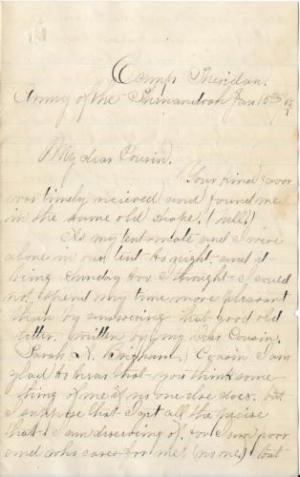 Camp Sheridan.
Army of the Shenandoah Jan 15th
My dear Cousin.
Your kind favor
was timely recieved and found me
in the same old shoke. (well.)
As my tent-mate and I were
alone in our tent to night, and it
being Sunday too I thought I could
not spend my time more pleasant
than by answering that good old
letter. written by my dear Cousin.
Sarah Brigham. Cousin I am
glad to hear that you think some-
thing of me if no one else does. but
I suppose that I get all the praise
that I am discerving of. for I am poor
and who cares for me! (no one) but